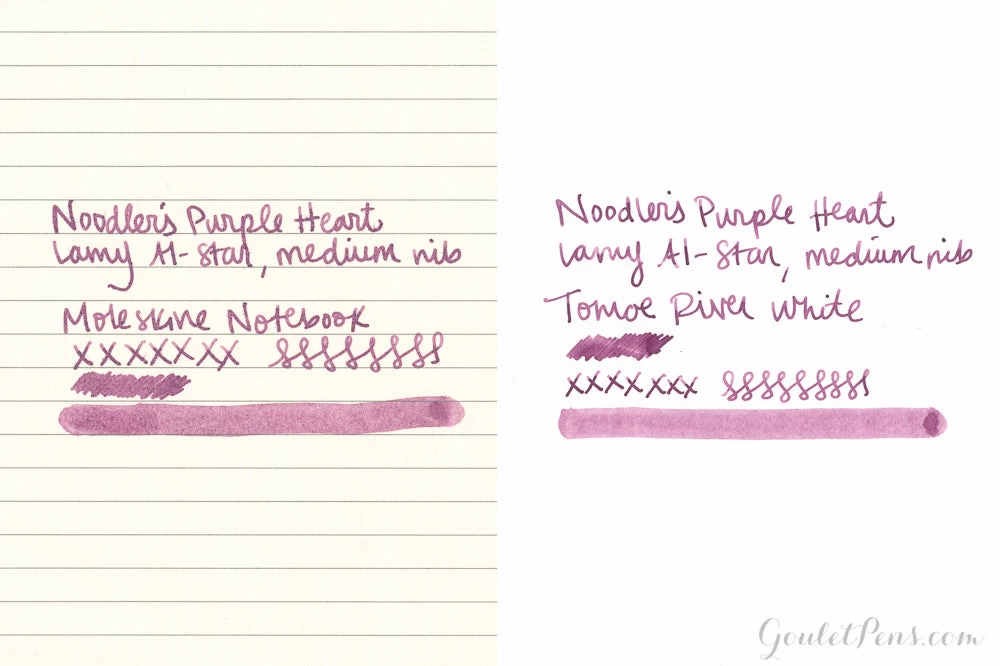 Noodler's Purple Heart
Lamy Al-Star, medium nib
Moleskine Notebook
xxxxxxx sssssssss
Noodler's Purple Heart
Lamy Al-Star, medium nib
Tomoe River White
xxxxxxx ssssssssss
GouletPens.com